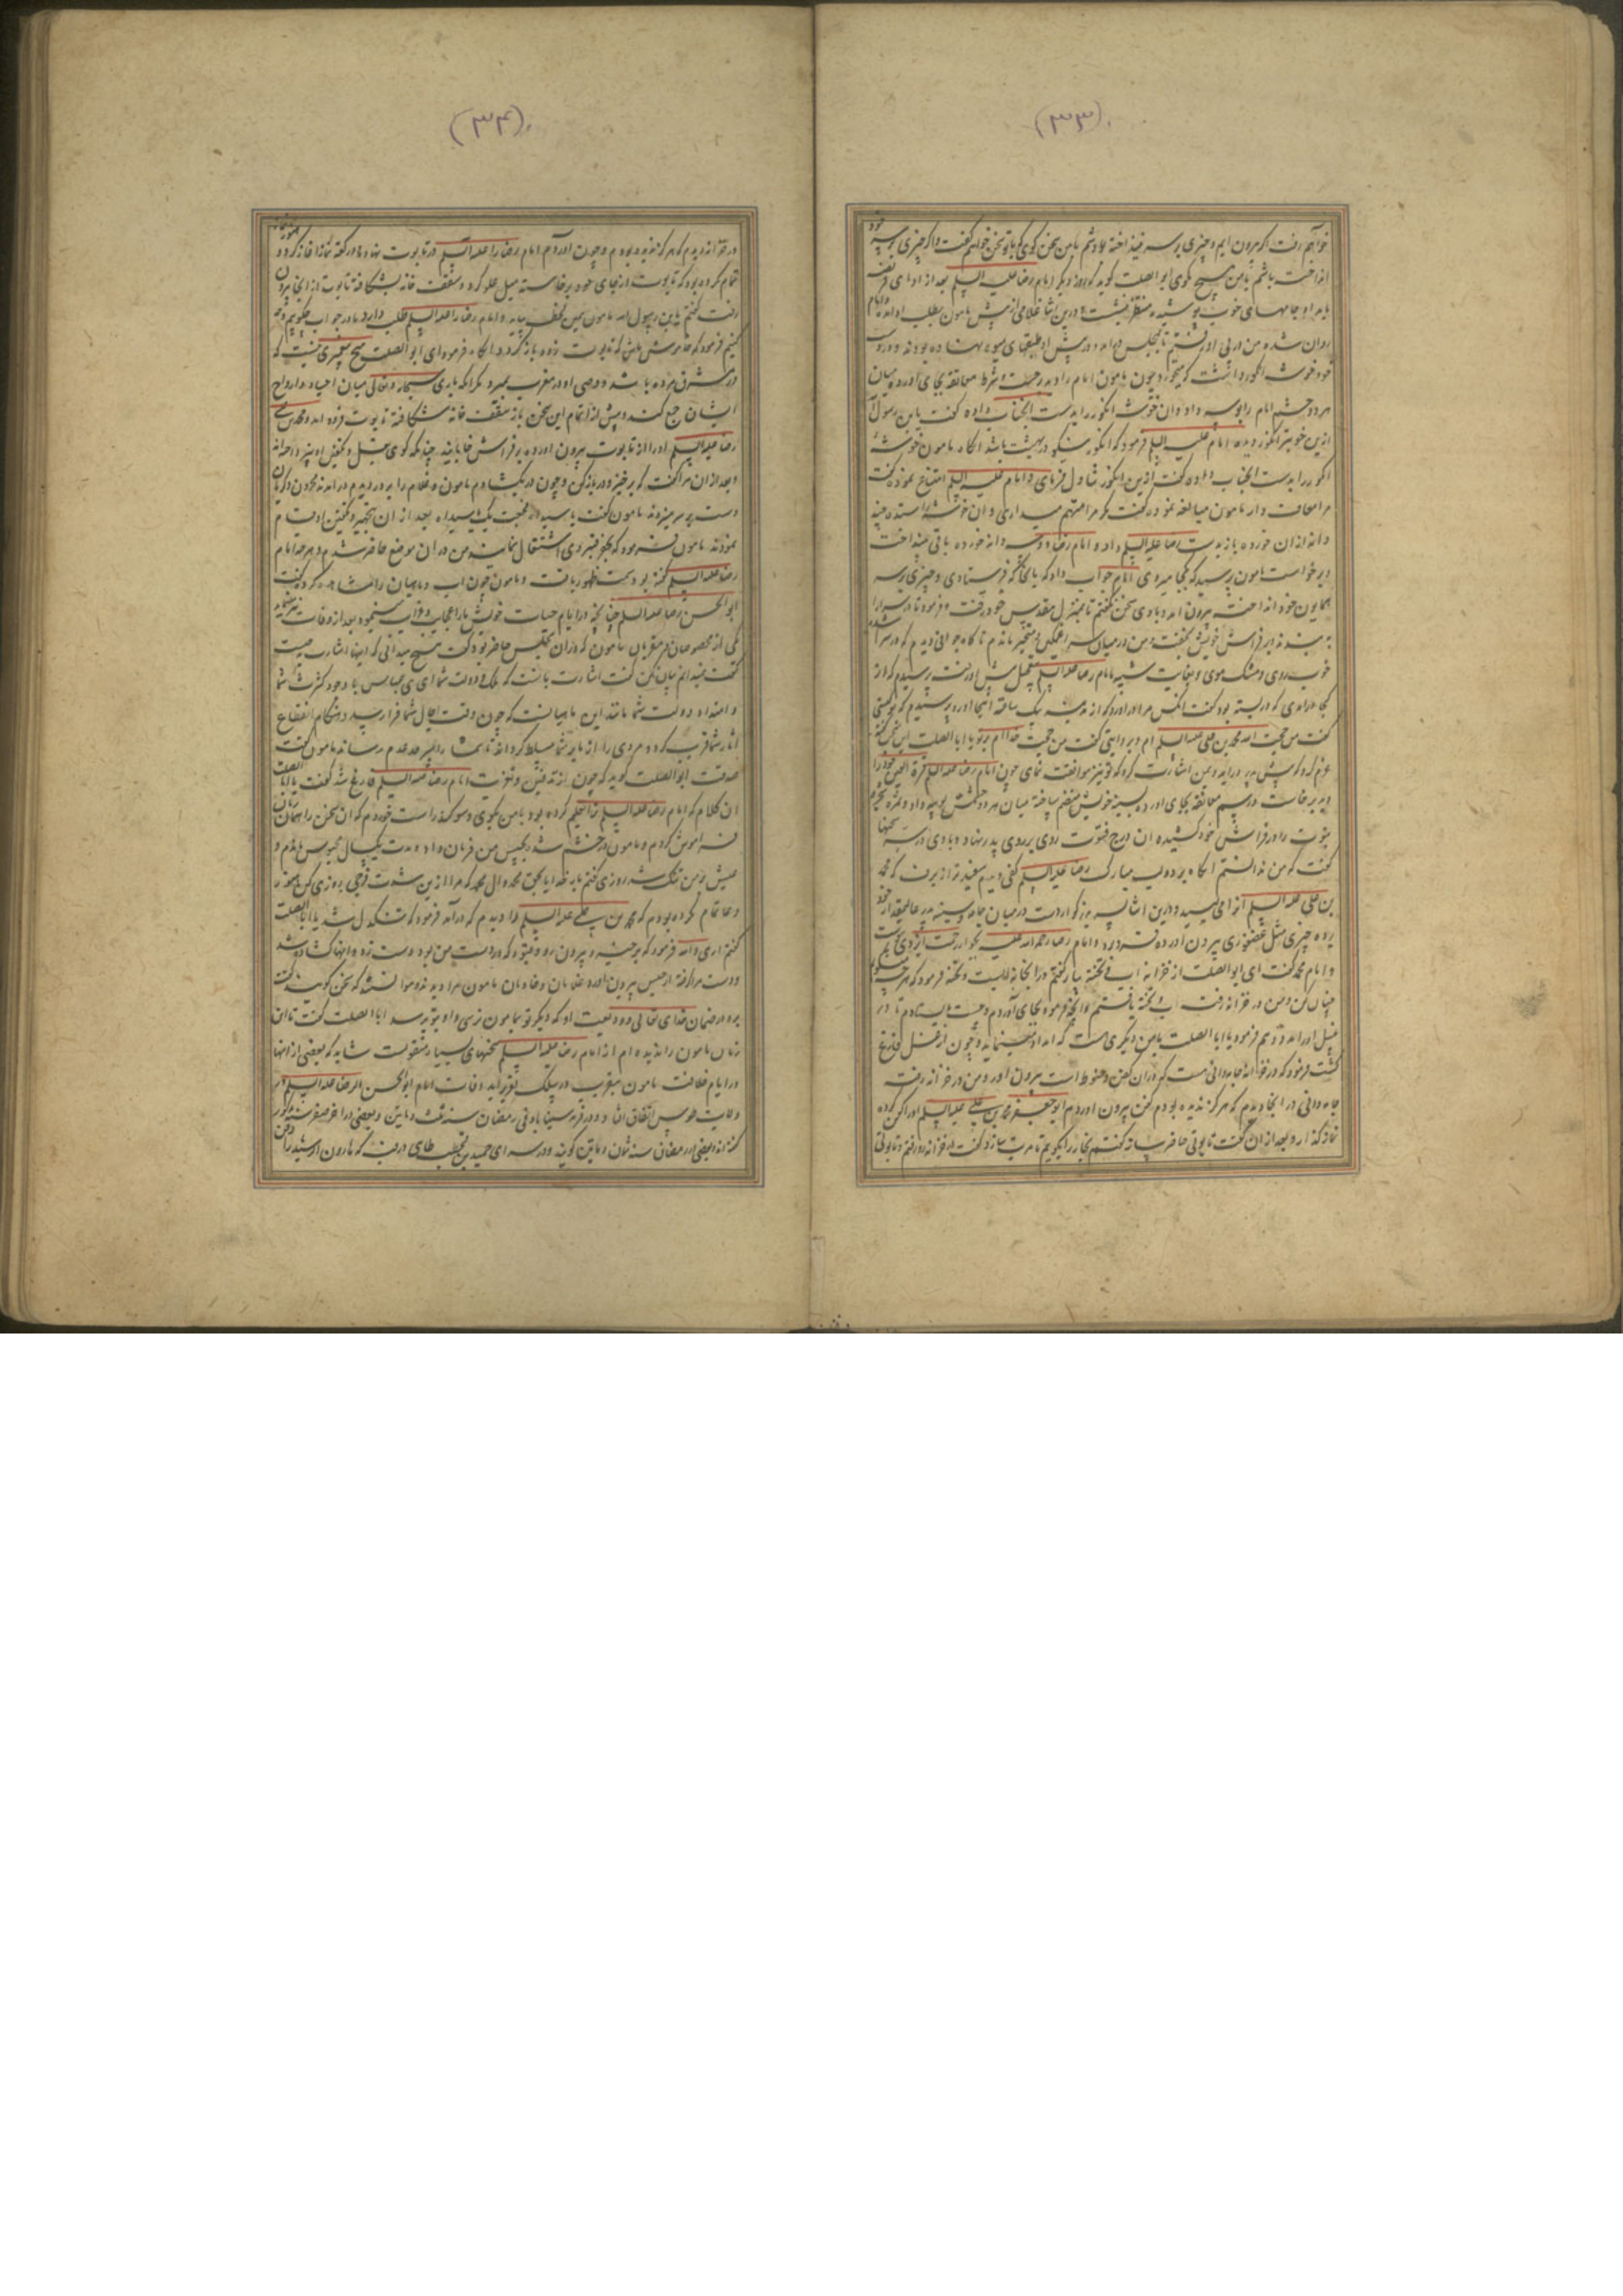 (۳۳)
خواهم رفت اگر بیرون ایم و چیزی بر سر نینداخته باشم با من سخن کوی که با تو سخن خواهم کفت و اگر چیزی بر سر خود
انداخته باشم با من هیچ مکوی ابو الصلت کوید که روز دیکر امام رضا علیه السلم بعد از ادای فریضه
بامداد جامهای خوب پوشیده منتظر بنشست و درین اثنا غلامی از پیش مامون بطلب او امد و امام
روان شده من در پی او رفتم تا بمجلس در امد و در پیش او طبقهای میوه نهاده بودند و در دست
خود خوشه انکور داشت که میخورد چون مامون امام را دید برجست و شرط معانقه بجای اورده میان
هر دو چشم امام را بوسه داد و ان خوشه انکور را بدست انجناب داده کفت یا بن رسول الله
ازین خوبتر انکور دیده امام علیه السلم فرمود که انکور نیکو در بهشت باشد انکاه مامون خوشه
انکور را بدست انجناب داده کفت ازین انکور تناول فرمای و امام علیه السلم امتناع نموده کفت
مرا معاف دار مامون مبالغه نموده کفت مکر مرا متهم میداری و ان خوشه را ستده چند
دانه ازان خورده باز بدست رضا علیه السلم داد و امام رضا دو سه دانه خورده باقی بینداخت
و برخواست مامون پرسید که بکجا میروی امام جواب داد که بانجا که فرستادی و چیزی بر سر
همایون خود انداخته بیرون امد و با وی سخن نکفتم تا بمنزل مقدس خود رفت و فرمود تا در سرا را
به بندند و بر فراش خویش بخفت و من در میان سرا غمکین و متحیر ماندم ناکاه جوانی دیدم که در سرا امد
خوب روی و مشک موی و بغایت شبیه بامام رضا علیه السلم بتعجیل پیش او رفته پرسیدم که از
کجا درامدی که در بسته بود کفت انکس مرا دراورد که از مدینه بیک ساعت اینجا اورد پرسیدم که تو کیستی
کفت من حجت الله محمد بن علی علیه السلم ام و بروایتی کفت من حجت خدا ام بر تو یا ابا الصلت این سخن کفته
عزم کرد که پیش پدر دراید و بمن اشارت کرد که تو نیز موافقت نمای چون امام رضا علیه السلم قرة العین خود را
دید برخاست و رسم معانقه بجای اورد و بسینه خویش منضم ساخته میان هر دو چشمش بوسه داد و
نبوت را در فراش خود کشیده ان درج فتوت روی بر روی پدر نهاد و با وی در سر سخنها
کفت که من ندانستم انکاه بر دو لب مبارک رضا علیه السلم کفی دیدم سفیدتر از برف که محمد
بن علی علیه السلم انرا می لیسید و درین اثنا پسر بزرکوار دست در میان جامه و سینه پدر عالیمقدار خود
برده چیزی مثل عصفوری بیرون اورده فرو برد و امام رضا رحمة الله علیه بجوار رحمت ایزدی پیوست
و امام محمد کفت ای ابو الصلت از خزانه اب و تخته بیار کفتم در انجا نه ابست و نه تخته فرمود که هرچه میکویم
چنان کن و من در خزانه رفته اب و تخته یافتم و انچه فرموده بجای آوردم و چست بایستادم تا در
غسل او را مدد دهم فرمود یا ابا الصلت با من دیکری هست که امداد مینماید و چون از غسل فارغ
کشت فرمود که در خزانه جامه دانی هست که در ان کفن و حنوط است بیرون اور و من در خزانه رفته
جامه دانی در انجا دیدم که هرکز ندیده بودم کفن بیرون اوردم ابو جعفر محمد بن علی علیه السلم او را کفن کرده
نماز کذارد و بعد ازان کفت تابوتی حاضر ساز کفتم نجار را بکویم تا مرتب سازد کفت در خزانه رو رفتم و تابوتی
(۳۴)
در خزانه دیدم که هرکز ندیده بودم و چون اوردم امام رضا را علیه السلم در تابوت نهاد و دو رکعت نماز اغاز کرد و هنوز نماز
تمام نکرده بود که تابوت از جای خود برخاسته میل علو کرد و سقف خانه بشکافت و تابوت از انجا بیرون
رفت کفتم یا بن رسول الله مامون همین لحظه بیاید و امام رضا را علیه السلم طلب دارد ما در جواب چه کویم و چه
کنیم فرمود که خاموش باش که تابوت زود بازکردد انکاه فرمود ای ابو الصلت هیچ پیغمبری نیست که
در مشرق مرده باشد و وصی او در مغرب بمیرد مکر انکه باری سبحانه و تعالی میان اجساد و ارواح
ایشان جمع کند و پیش از اتمام این سخن باز سقف خانه شکافته تابوت فرود امد و محمد بن علی
رضا علیه السلم او را از تابوت بیرون اورده بر فراش خابانید چنانکه کوی غسل و تکفین او نپرداخته اند
و بعد ازان مرا کفت که برخیز و در باز کن و چون در بکشادم مامون و غلام را بر در دیدم درامدند محزون و کریان
دست بر سر میزدند مامون کفت یا سیداه فجعت بک یا سیداه بعد از ان بتجهیز و تکفین او قیام
نمودند مامون فرمود که بحفر قبر وی اشتغال نمایند من در ان موضع حاضر شدم و هرچه امام
رضا علیه السلم کفته بود بسمت ظهور یافت و مامون چون اب و ماهیان را مشاهده کرد کفت
ابو الحسن رضا علیه السلم چنانچه در ایام حیات خویش ما را عجایب و غرایب مینمود بعد از وفات نیز مینماید
یکی از مخصوصان و مقربان مامون که در ان مجلس حاضر بود کفت هیچ میدانی که اینها اشارت بچیست
کفت نمیدانم بیان کن کفت اشارت بانست که ملک و دولت شما ای بنی عباس با وجود کثرت شما
و امتداد دولت شما مانند این ماهیانست که چون وقت اجال شما فرا رسید و هنکام انقطاع
اثار شما قریب کردد مردی را از ما بر شما مسلط کرداند تا شما را بسر حد عدم رساند مامون کفت
صدقت ابو الصلت کوید که چون از تدفین و تعزیت امام رضا علیه السلم فارغ شد کفت یا ابا الصلت
ان کلام که امام رضا علیه السلم ترا تعلیم کرده بود با من بکوی و سوکند راست خوردم که ان سخن را همان زمان
فراموش کردم و مامون در خشم شد بحبس من فرمان داد و مدت یکسال محبوس ماندم و
عیش بر من تنک شد روزی کفتم بار خدایا بحق محمد و ال محمد که مرا ازین شدت فرجی روزی کن هنوز
دعا تمام نکرده بودم که محمد بن علی علیه السلم را دیدم که درآمد فرمود که تنکدل شدی یا ابا الصلت
کفتم اری والله فرمود که برخیز و بیرون رو و قیود که بر دست من بود دست زد و انها کشاده شد
و دست مرا کرفته از حبس بیرون اورد و غلامان و خادمان مامون مرا دیدند و نتوانستند که سخن کویند کفت
برو در ضمان خدای تعالی و ودیعت او که دیکر تو بمامون نرسی و او بتو نرسد ابا الصلت کفت تا این
زمان مامون را ندیده ام از امام رضا علیه السلم سخنهای بسیار منقولست شاید که بعضی از انها
در ایام خلافت مامون بتقریب در سلک تحریر اید وفات امام ابو الحسن الرضا علیه السلم در
ولایت طوس اتفاق افتاد و در قریه سناباد فی رمضان سنه ثلث و مایتین و بعضی در اخر صفر سنه مذکور
کفته اند و بعضی در رمضان سنه ثمان و مایتین کویند و در سرای حمید بن قحطب طای در قبه که هارون الرشید را دفن